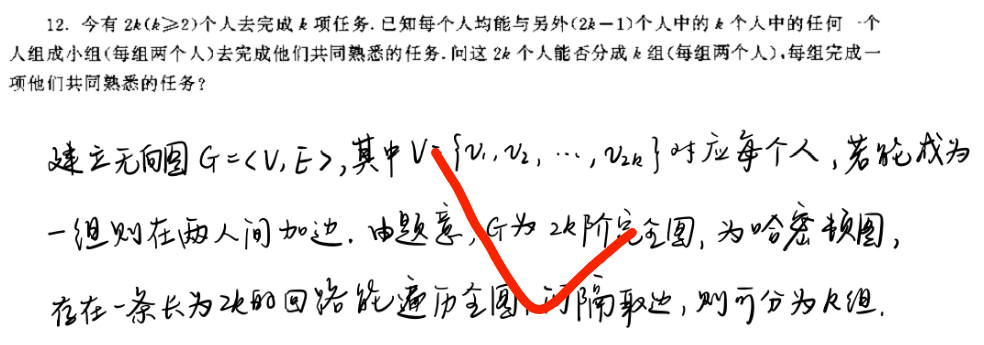 12. 今有 2k(k≥2)个人去完成 k 项任务.已知每个人均能与另外(2k−1)个人中的 k 个人中的任何一个
人组成小组(每组两个人)去完成他们共同熟悉的任务.问这 2k 个人能否分成 k 组(每组两个人),每组完成一
项他们共同熟悉的任务?
建立无向图 G=<V, E>,其中 V={v₁,v₂, ⋯, v₂ₖ} 对应每个人,若能成为
一组则在两人间加边. 由题意,G为 2k阶完全图,为哈密顿图,
存在一条长为2k的回路能遍历全图,间隔取边,则可分为k组.